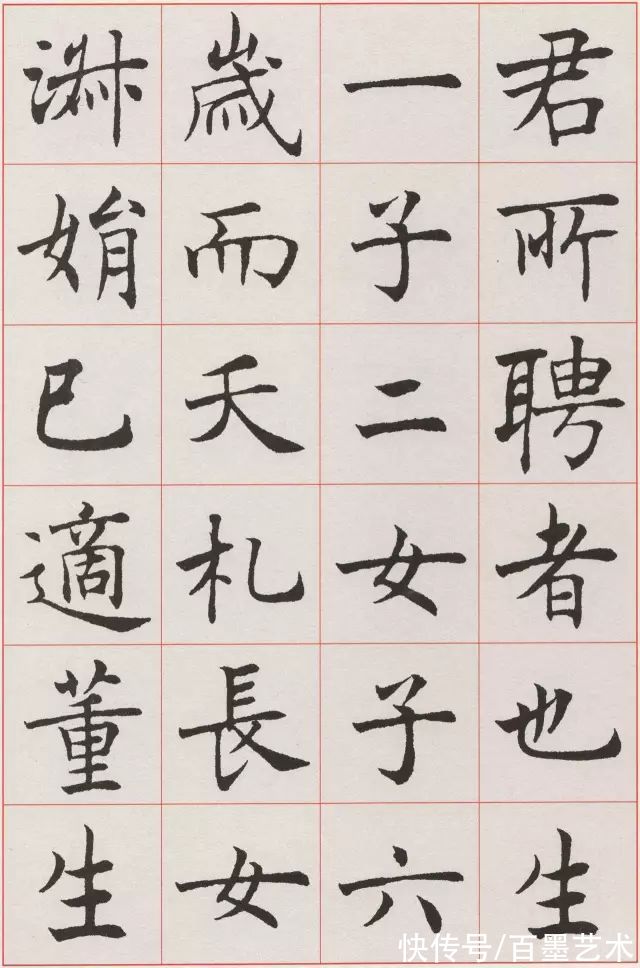 君所聘者也生
一子二女子六
歲而夭札長女
娟已適董生
快传号/百墨艺术